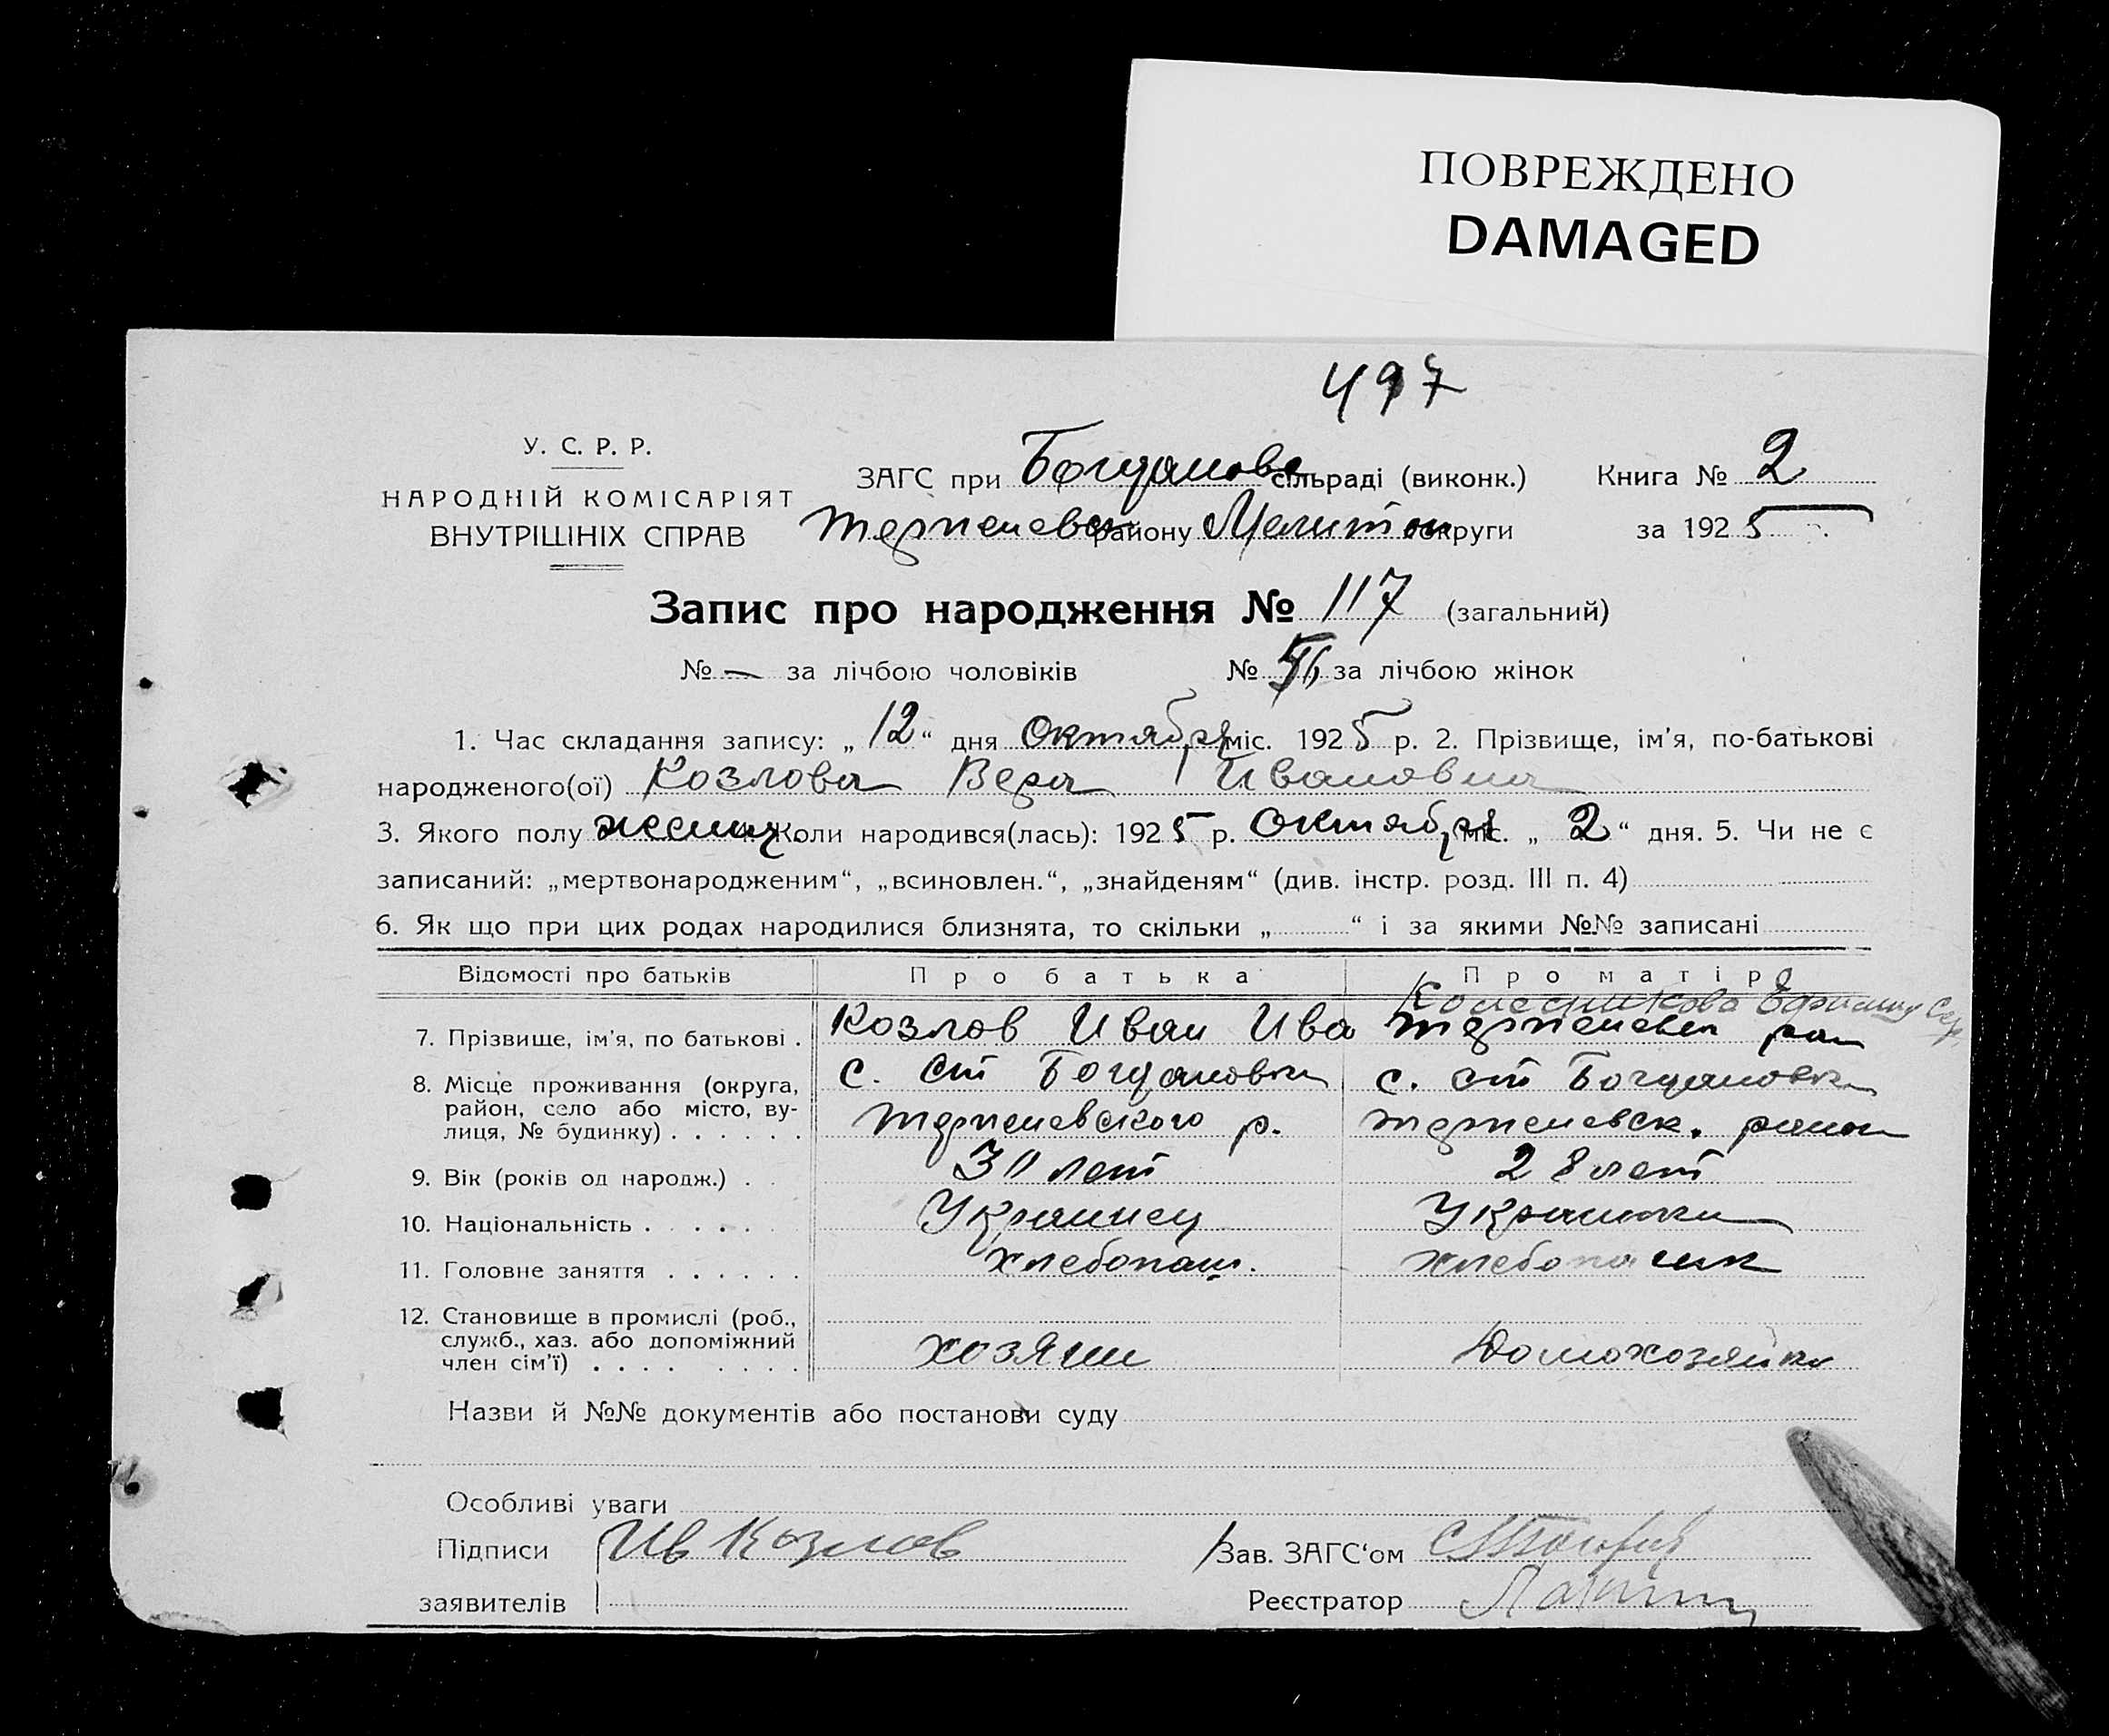 ПОВРЕЖДЕНО
DAMAGED
497
У. С. Р. Р.
НАРОДНІЙ КОМІСАРІЯТ
ВНУТРІШНІХ СПРАВ
ЗАГС при Богданов сільраді (виконк.) Книга № 2
Терпеневск району Мелитоп округи за 1925
Запис про народження № 117 (загальний)
№ — за лічбою чоловіків № за лічбою жінок
1. Час складання запису: „12“ дня Октября міс. 1925 р. 2. Прізвище, ім'я, по-батькові
народженого(ої) Козлова Вера Ивановна
3. Якого полу женщ. 4. Коли народився(лась): 1925 р. Октября міс. „2“ дня. 5. Чи не є
записаний: „мертвонародженим“, „всиновлен.“, „знайденям“ (див. інстр. розд. III п. 4)
6. Як що при цих родах народилися близнята, то скільки „ “ і за якими №№ записані
Відомості про батьків Про батька Про матір
Колесникова
7. Прізвище, ім'я, по батькові . Козлов Иван Ива Терпеневск
8. Місце проживання (округа, район, село або місто, вулиця, № будинку) . . . . . .
с. Ст Богдановка с. Ст Богдановка
Терпеневского р. Терпеневск. район
9. Вік (років од народж.) . . 30 лет 28 лет
10. Національність . . . . . Украинец Украинка
11. Головне заняття . . . . . . хлебопаш. хлебопашк
12. Становище в промислі (роб.,
служб., хаз. або допоміжний
член сім'ї) . . . . . . . . хозяин Домохозяйка
Назви й №№ документів або постанови суду
Особливі уваги
Підписи Ив Козлов Зав. ЗАГС‘ом
заявителів Реєстратор